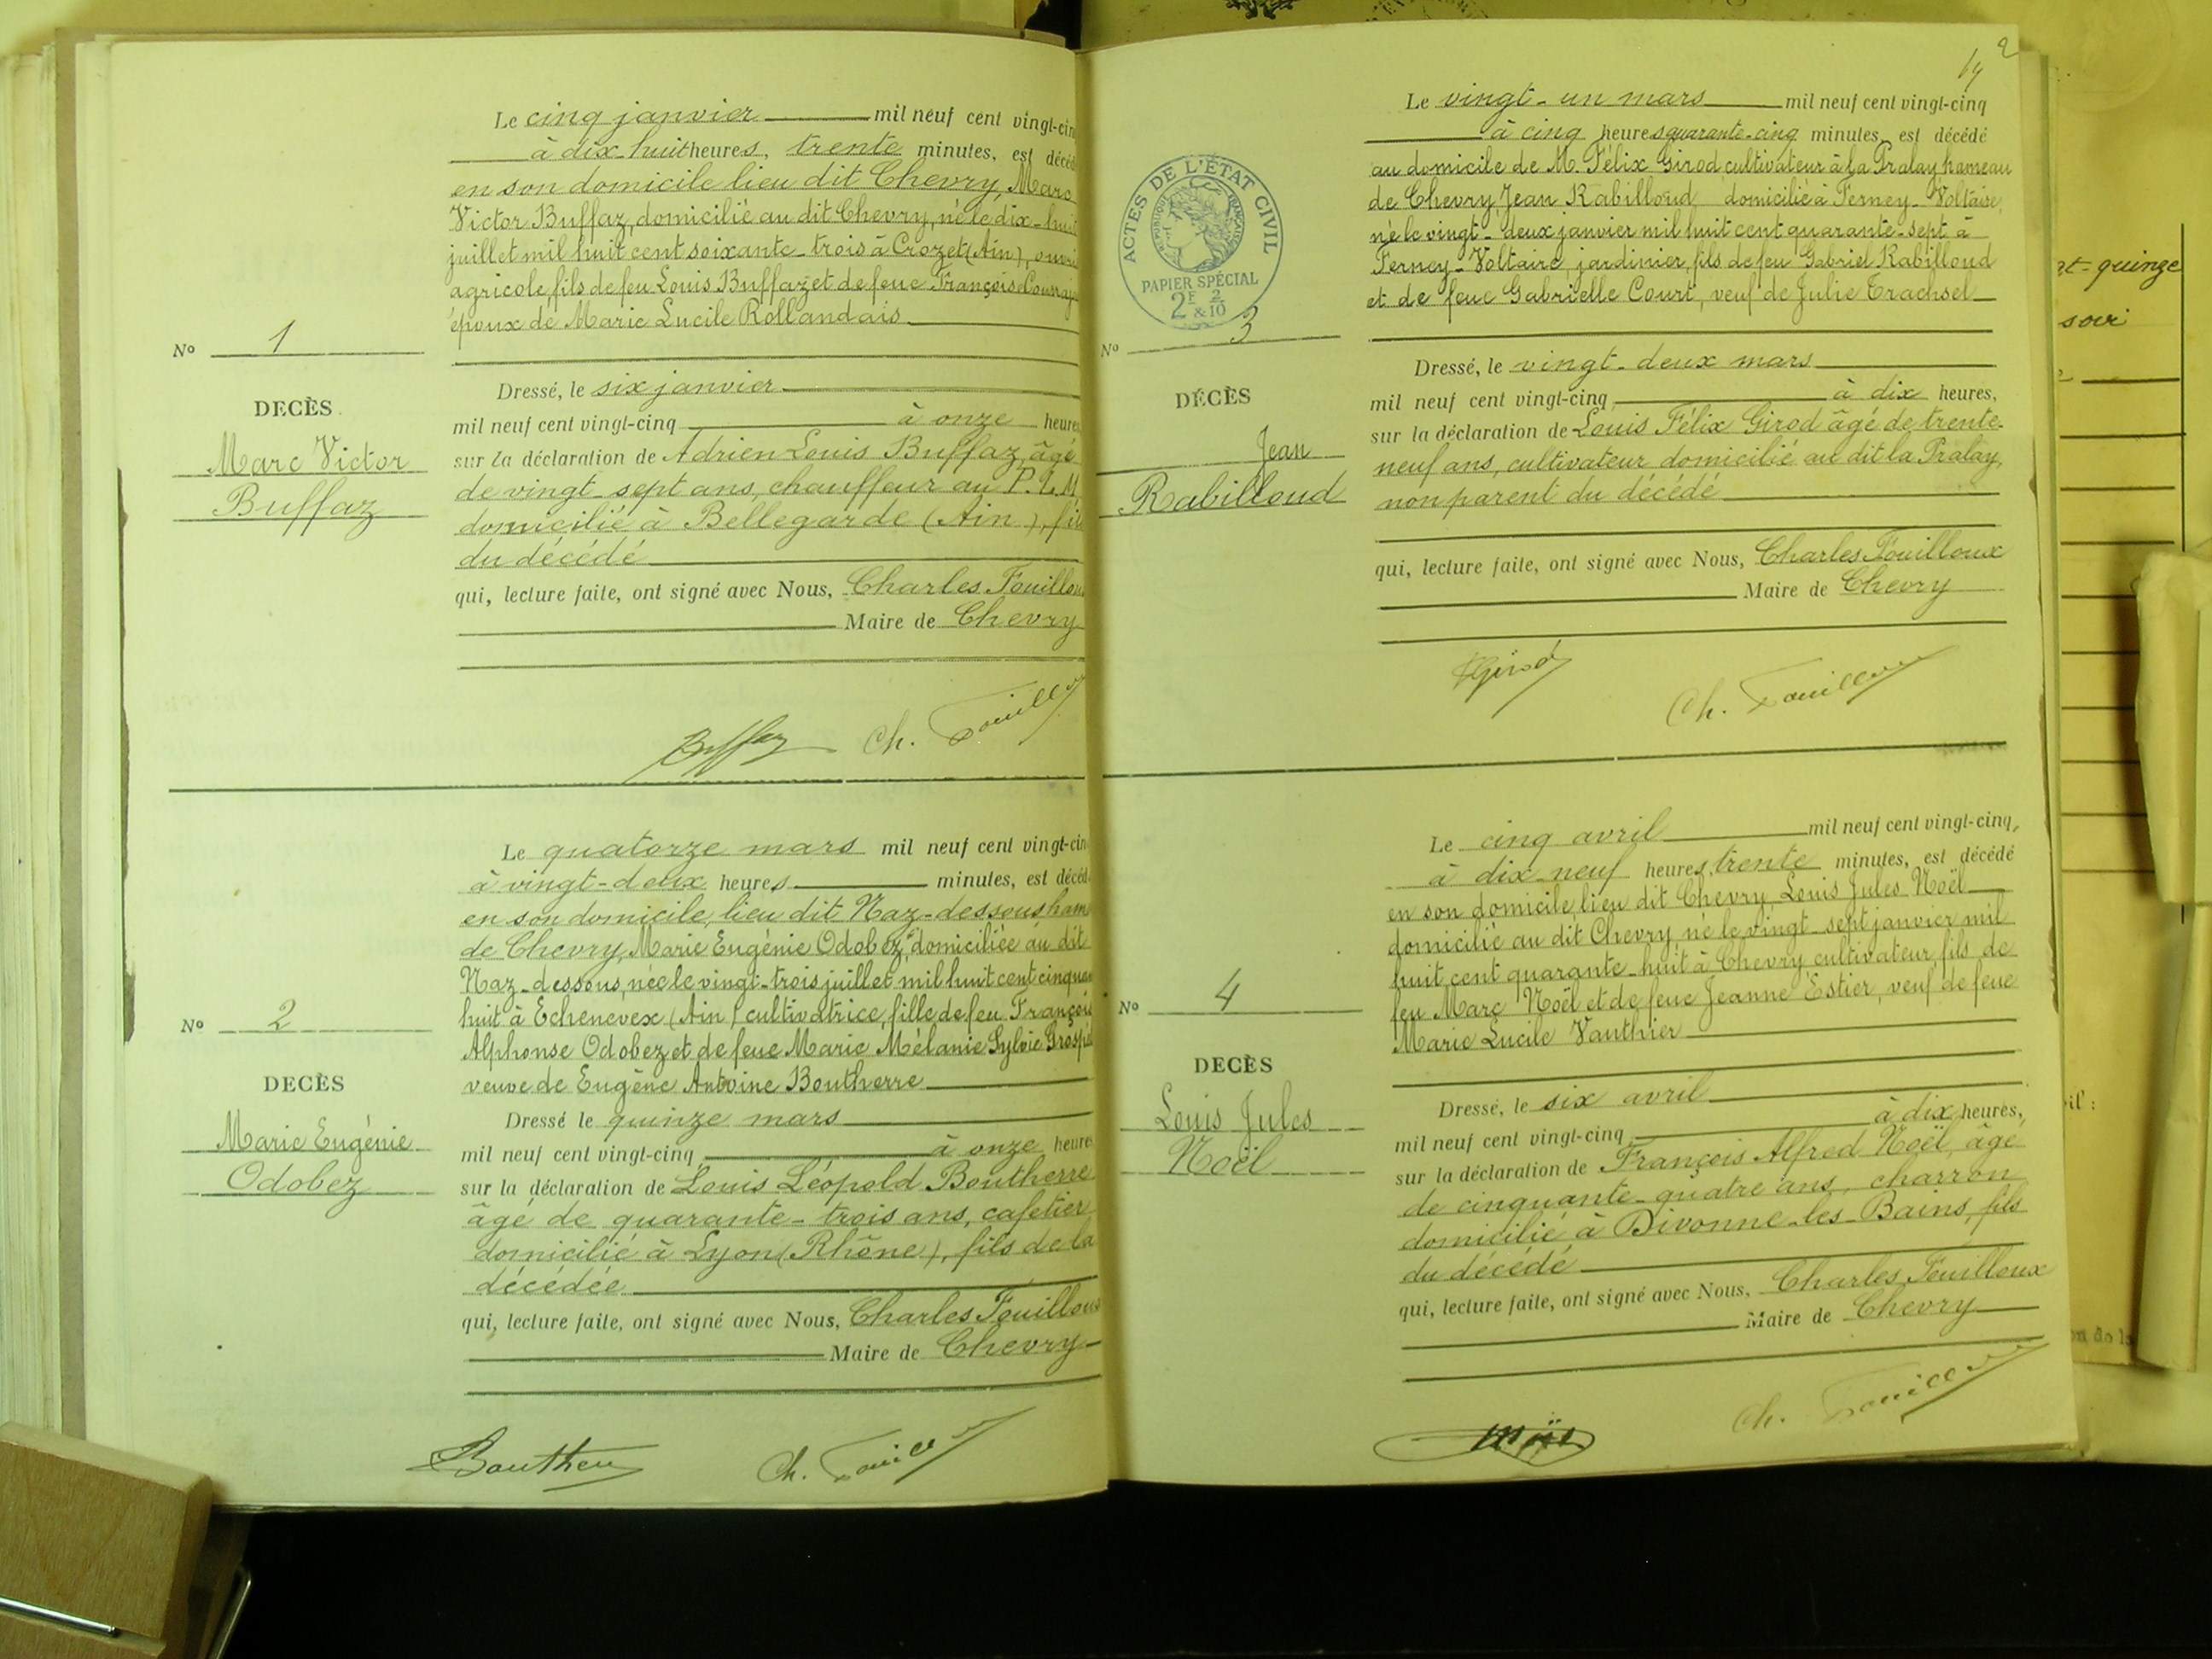 Le cinq janvier mil neuf cent vingt-cin
à dix-huit heures, trente minutes, est décéd
en son domicile lieu dit Chevry, Marc
Victor Buffaz, domicilié au dit Chevry, né le dix-huit
juillet mil huit cent soixante-trois à Crozet (Ain), ouvri
agricole, fils de feu Louis Buffaz et de feue Françoise
époux de Marie Lucile Rollandais
No 1
DECÈS
Marc Victor
Buffaz
Dressé, le six janvier
mil neuf cent vingt-cinq à onze heures
sur la déclaration de Adrien Louis Buffaz, âgé
de vingt-sept ans, chauffeur au P.L.M
domicilié à Bellegarde (Ain), fils
du décédé
qui, lecture faite, ont signé avec Nous, Charles Fouillou
Maire de Chevry
Buffaz Ch. Fouilloux
Le quatorze mars mil neuf cent vingt-cin
à vingt-deux heures minutes, est décéd
en son domicile, lieu dit Naz-dessous ham
de Chevry, Marie Eugénie Odobez, domiciliée au dit
Naz-dessous, née le vingt-trois juillet mil huit cent cinquan
huit à Echenevex (Ain) cultivatrice, fille de feu François
Alphonse Odobez et de feue Marie Mélanie Sylvie
veuve de Eugène Antoine Boutherre
No 2
DECÈS
Marie Eugénie
Odobez
Dressé le quinze mars
mil neuf cent vingt-cinq à onze heures
sur la déclaration de Louis Léopold Boutherre
âgé de quarante-trois ans, cafetier
domicilié à Lyon (Rhône), fils de la
décédée
qui, lecture faite, ont signé avec Nous, Charles Fouilloux
Maire de Chevry
Bouthern Ch. Fouilloux
2
14
Le vingt-un mars mil neuf cent vingt-cinq
à cinq heures quarante-cinq minutes, est décédé
au domicile de M. Félix Girod cultivateur à la Pralay hameau
de Chevry, Jean Rabilloud domicilié à Ferney-Voltaire,
né le vingt-deux janvier mil huit cent quarante-sept à
Ferney-Voltaire, jardinier, fils de feu Gabriel Rabilloud
et de feue Gabrielle Court, veuf de Julie Trachsel
ACTES DE L'ÉTAT CIVIL
RÉPUBLIQUE FRANÇAISE
PAPIER SPÉCIAL
2F & 2/10
No 3
DÉCÈS
Jean
Rabilloud
Dressé, le vingt-deux mars
mil neuf cent vingt-cinq, à dix heures,
sur la déclaration de Louis Félix Girod âgé de trente-
neuf ans, cultivateur domicilié au dit la Pralay,
non parent du décédé
qui, lecture faite, ont signé avec Nous, Charles Fouilloux
Maire de Chevry
FGirod Ch. Fouilloux
Le cinq avril mil neuf cent vingt-cinq,
à dix-neuf heures, trente minutes, est décédé
en son domicile, lieu dit Chevry, Louis Jules Noël
domicilié au dit Chevry, né le vingt-sept janvier mil
huit cent quarante-huit à Chevry cultivateur, fils de
feu Marc Noël et de feue Jeanne Estier, veuf de feue
Marie Lucile Vauthier
No 4
DECÈS
Louis Jules
Noël
Dressé, le six avril
mil neuf cent vingt-cinq, à dix heures,
sur la déclaration de François Alfred Noël, âgé
de cinquante-quatre ans, charron
domicilié à Divonne-les-Bains, fils
du décédé
qui, lecture faite, ont signé avec Nous, Charles Fouilloux
Maire de Chevry
Noël Ch. Fouilloux
gt-quinze
soir